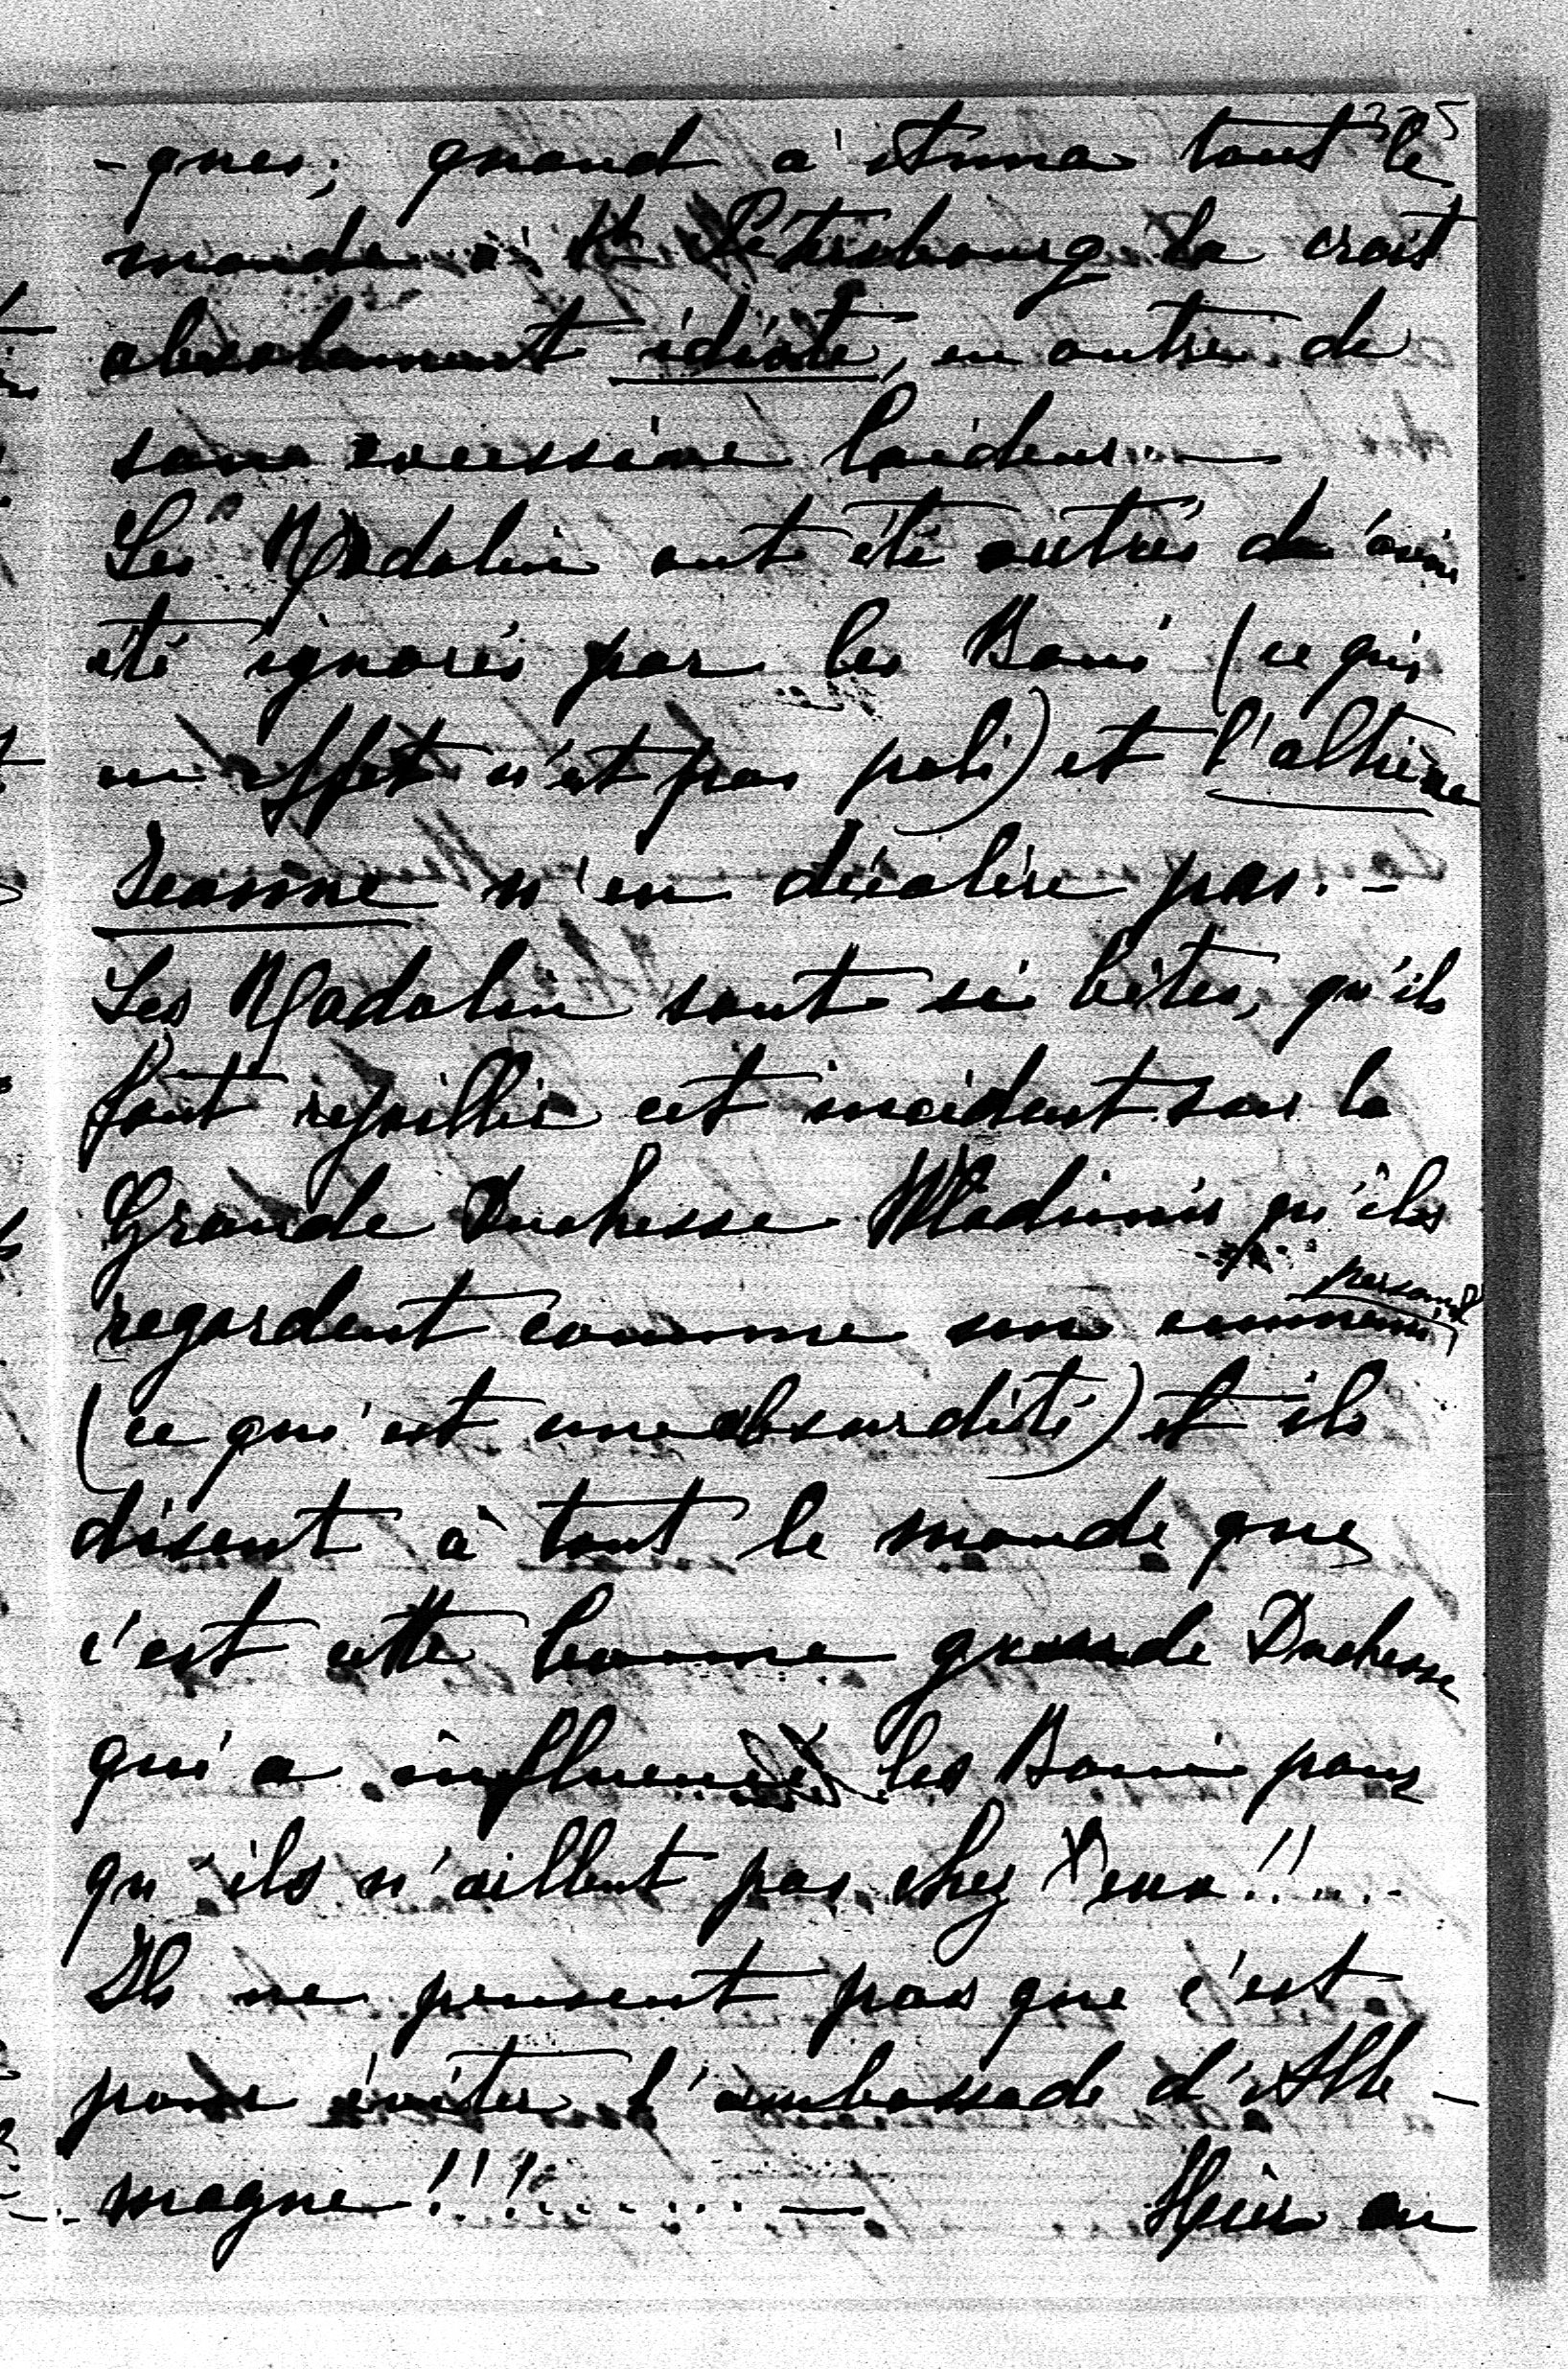 325
-ques; quand a' Anna tout le
monde a' St Pétersbourg la croit
absolument idiote, en outre de
son excessive laideur. —
Les Radolin ont été outrés d'avoir
été ignorés par les Boni (ce qui
en effet n'est pas poli) et l'altière
Jeanne n'en décolère pas. -
Les Radolin sont si bêtes, qu'ils
font rejaillir cet incident sur la
Grande Duchesse Wladimir qu'ils
regardent comme son ennemi personel
(ce qui est une absurdité) et ils
disent à tout le monde que
c'est cette bonne grande Duchesse
qui a influencé les Boni pour
qu'ils n'aillent pas chez eux!!...-
Ils ne pensent pas que c'est
pour éviter l'ambassade d'Alle-
magne!!!....... — Hier au